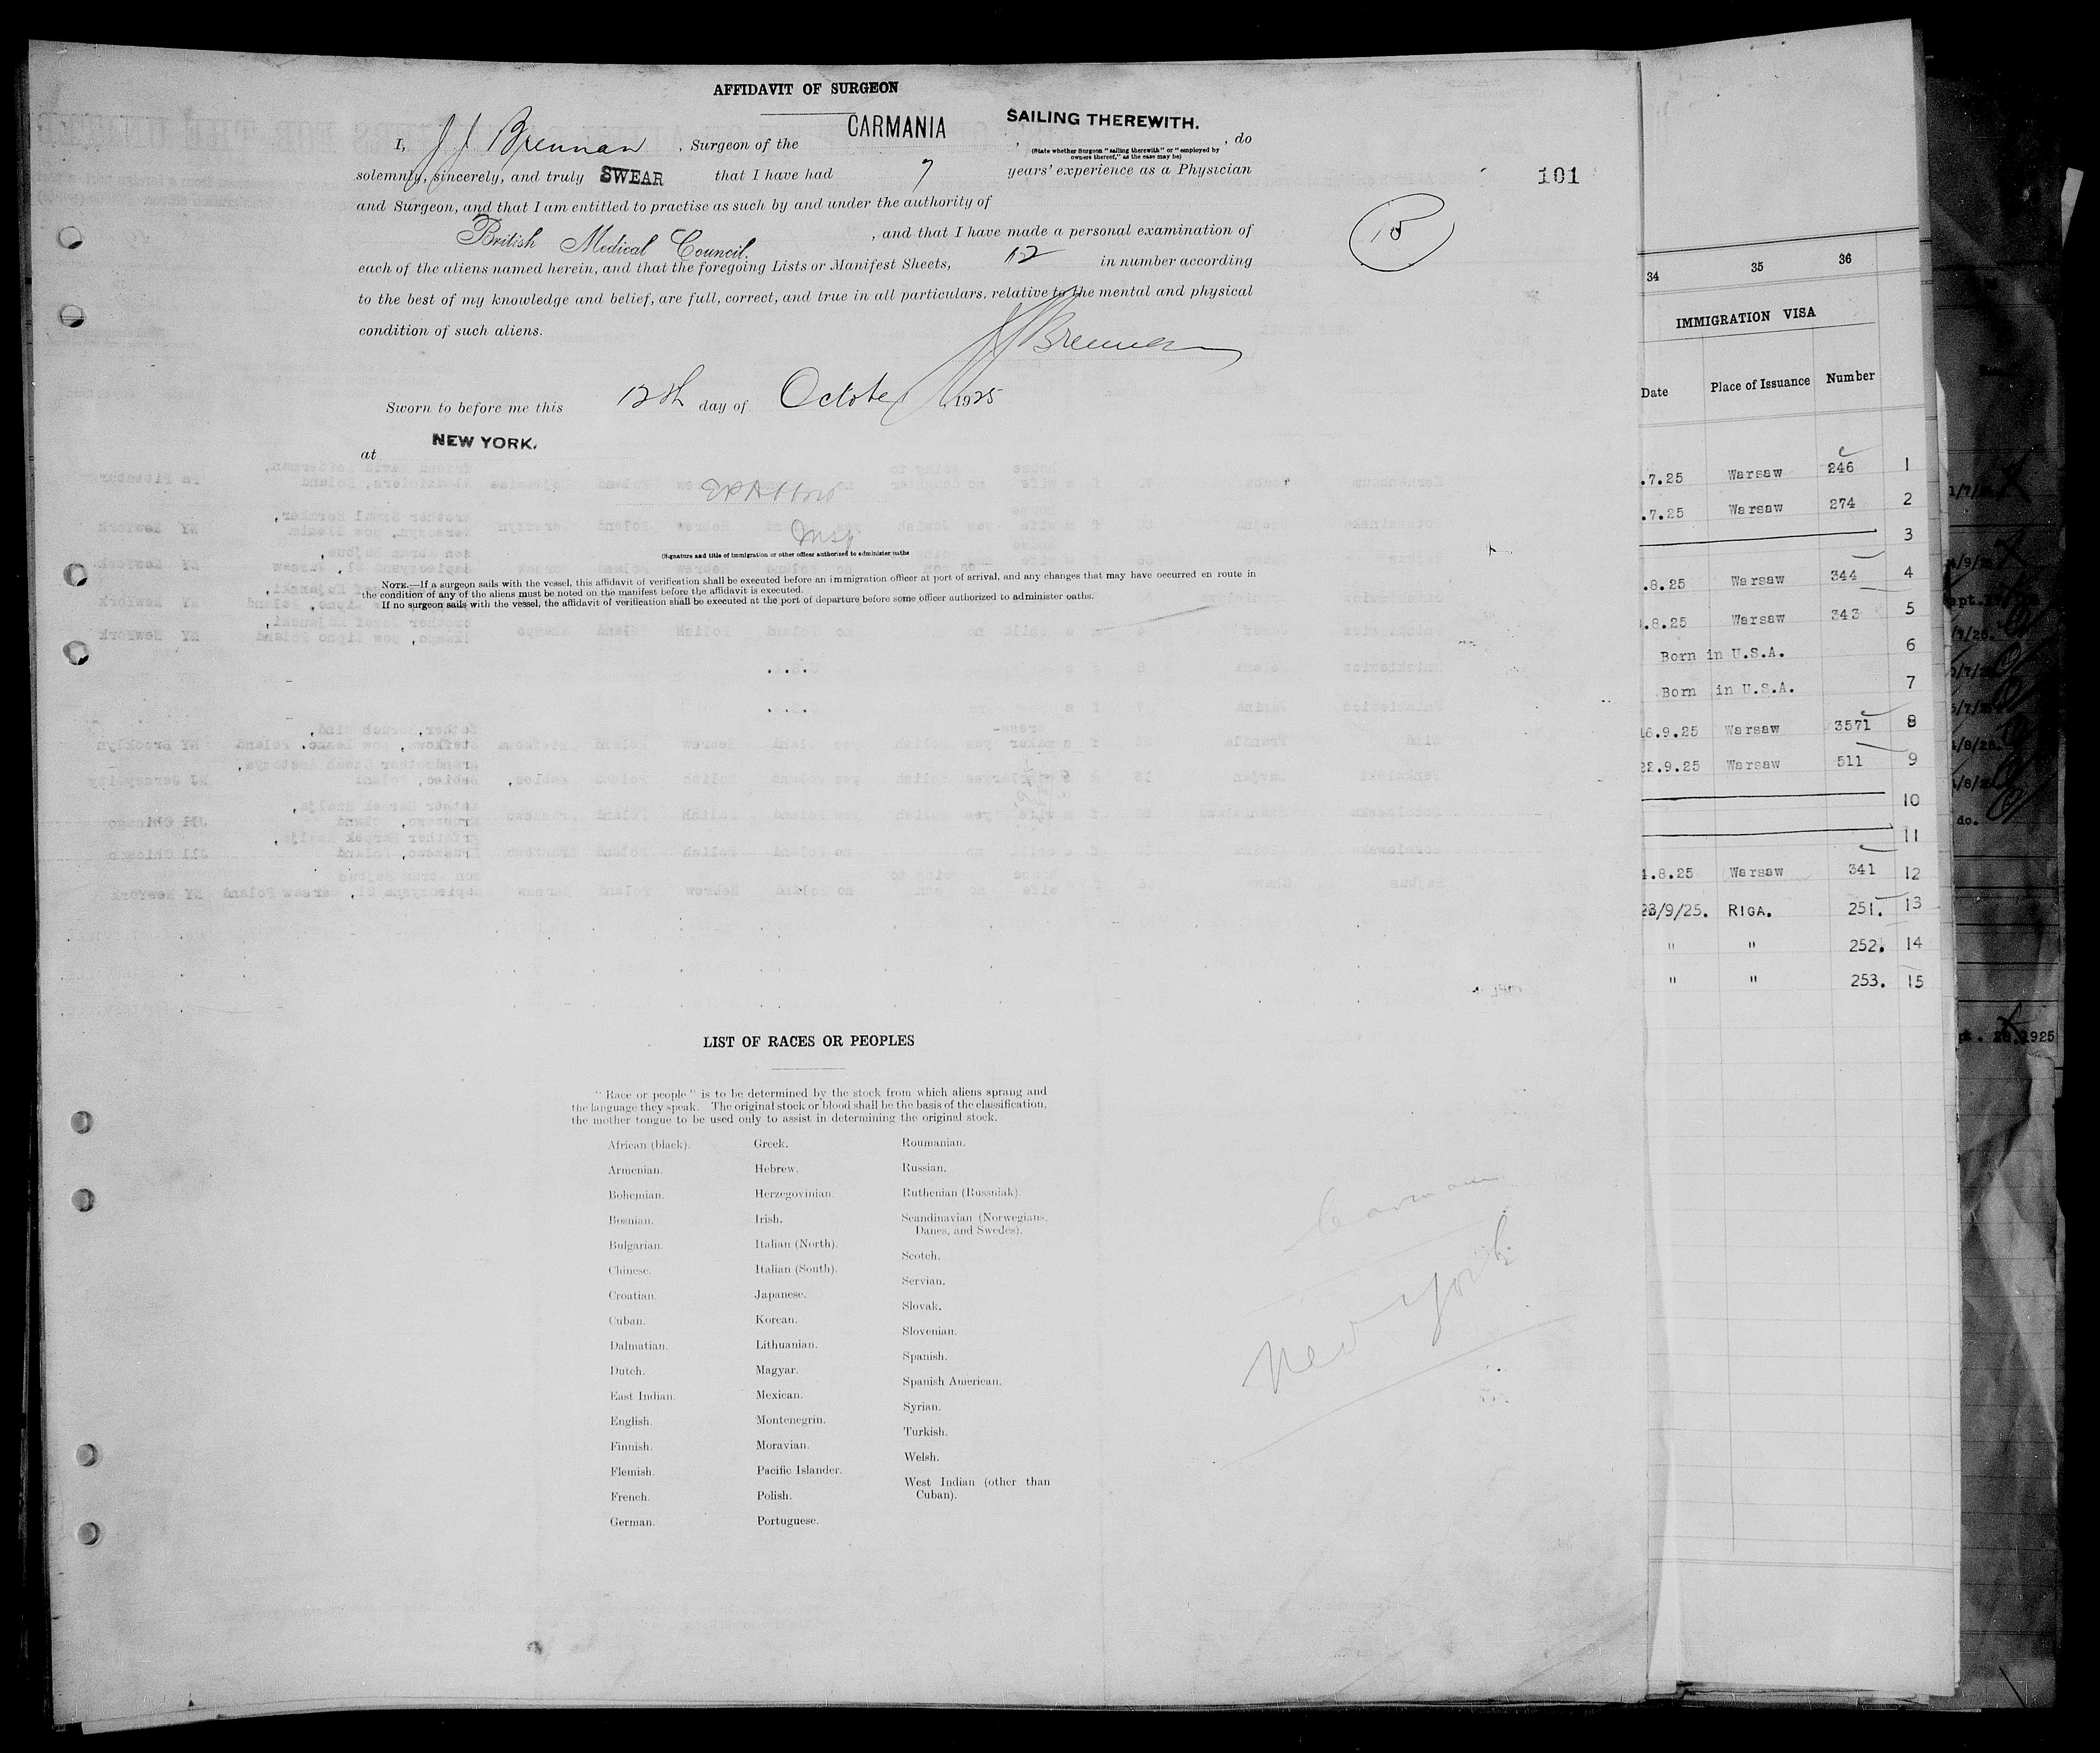 AFFIDAVIT OF SURGEON
I, J J Brennan, Surgeon of the CARMANIA SAILING THEREWITH. , do
(State whether Surgeon "sailing therewith" or "employed by
owners thereof," as the case may be)
solemnly, sincerely, and truly SWEAR that I have had 7 years' experience as a Physician
and Surgeon, and that I am entitled to practise as such by and under the authority of
British Medical Council. , and that I have made a personal examination of
each of the aliens named herein, and that the foregoing Lists or Manifest Sheets, 12 in number according
to the best of my knowledge and belief, are full, correct, and true in all particulars, relative to the mental and physical
condition of such aliens.
J J Brennan
Sworn to before me this 12th day of October 1925
at NEW YORK.
Insp
(Signature and title of immigration or other officer authorized to administer oaths
NOTE.—If a surgeon sails with the vessel, this affidavit of verification shall be executed before an immigration officer at port of arrival, and any changes that may have occurred en route in
the condition of any of the aliens must be noted on the manifest before the affidavit is executed.
If no surgeon sails with the vessel, the affidavit of verification shall be executed at the port of departure before some officer authorized to administer oaths.
101
15
LIST OF RACES OR PEOPLES
"Race or people" is to be determined by the stock from which aliens sprang and
the language they speak. The original stock or blood shall be the basis of the classification,
the mother tongue to be used only to assist in determining the original stock.
African (black).
Armenian.
Bohemian.
Bosnian.
Bulgarian.
Chinese.
Croatian.
Cuban.
Dalmatian.
Dutch.
East Indian.
English.
Finnish.
Flemish.
French.
German.
Greek.
Hebrew.
Herzegovinian.
Irish.
Italian (North).
Italian (South).
Japanese.
Korean.
Lithuanian.
Magyar.
Mexican.
Montenegrin.
Moravian.
Pacific Islander.
Polish.
Portuguese.
Roumanian.
Russian.
Ruthenian (Russniak).
Scandinavian (Norwegians,
Danes, and Swedes).
Scotch.
Servian.
Slovak.
Slovenian.
Spanish.
Spanish American.
Syrian.
Turkish.
Welsh.
West Indian (other than
Cuban).
Carmania
New York
34 35 36
IMMIGRATION VISA
Date Place of Issuance Number
.7.25 Warsaw 246 1
.7.25 Warsaw 274 2
3
.8.25 Warsaw 344 4
.8.25 Warsaw 343 5
Born in U.S.A. 6
Born in U.S.A. 7
16.9.25 Warsaw 3571 8
22.9.25 Warsaw 511 9
10
11
1.8.25 Warsaw 341 12
23/9/25. RIGA. 251. 13
" " 252. 14
" " 253. 15
do.